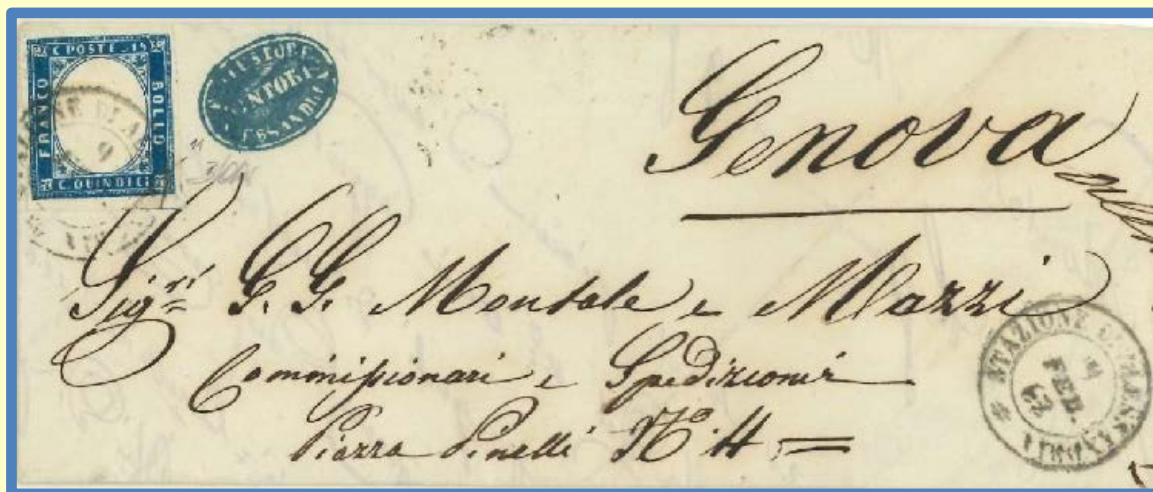 C. POSTE. 15
FRANCO
BOLLO
C. QUINDICI
Genova
Sig.ri G. G. Montale e Mazzi
Commissionari e Spedizionir
Piazza Pinelli N. 4
STAZIONE DI ALESSANDRIA
9
FEB.
63